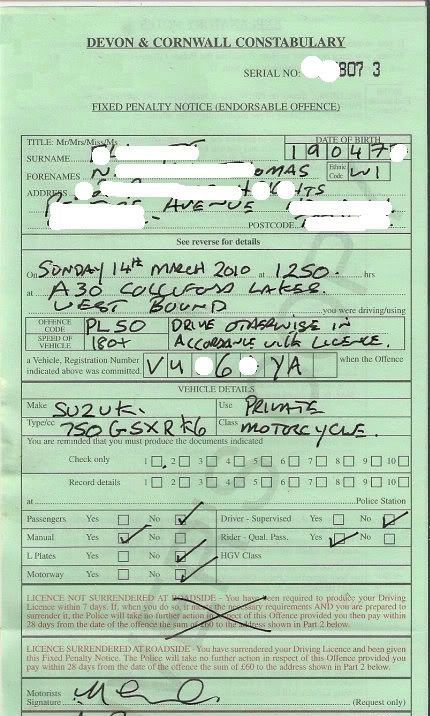 DEVON & CORNWALL CONSTABULARY
SERIAL NO: 807 3
FIXED PENALTY NOTICE (ENDORSABLE OFFENCE)
TITLE: Mr/Mrs/Miss/Ms
DATE OF BIRTH
SURNAME
19047
FORENAMES N OMAS
Ethnic Code W1
ADDRESS HTS
AVENUE
POSTCODE
See reverse for details
On SUNDAY 14TH MARCH 2010 at 1250. hrs
at A30 COLLIFORD LAKES
WEST BOUND
you were driving/using
OFFENCE CODE PL50 DRIVE OTHERWISE IN
SPEED OF VEHICLE 180+ ACCORDANCE WITH LICENCE.
a Vehicle, Registration Number VU 6 YA when the Offence
indicated above was committed.
VEHICLE DETAILS
Make SUZUKI. Use PRIVATE
Type/cc 750 GSXR K6 Class MOTORCYCLE.
You are reminded that you must produce the documents indicated
Check only 1 2 3 4 5 6 7 8 9 10
Record details 1 2 3 4 5 6 7 8 9 10
at Police Station
Passengers Yes No Driver - Supervised Yes No
Manual Yes No Rider - Qual. Pass. Yes No
L Plates Yes No HGV Class
Motorway Yes No
LICENCE NOT SURRENDERED AT ROADSIDE - You have been required to produce your Driving
Licence within 7 days. If, when you do so, it meets the necessary requirements AND you are prepared to
surrender it, the Police will take no further action in respect of this Offence provided you then pay within
28 days from the date of the offence the sum of £60 to the address shown in Part 2 below.
LICENCE SURRENDERED AT ROADSIDE - You have surrendered your Driving Licence and been given
this Fixed Penalty Notice. The Police will take no further action in respect of this Offence provided you
pay within 28 days from the date of the offence the sum of £60 to the address shown in Part 2 below.
Motorists
Signature (Request only)